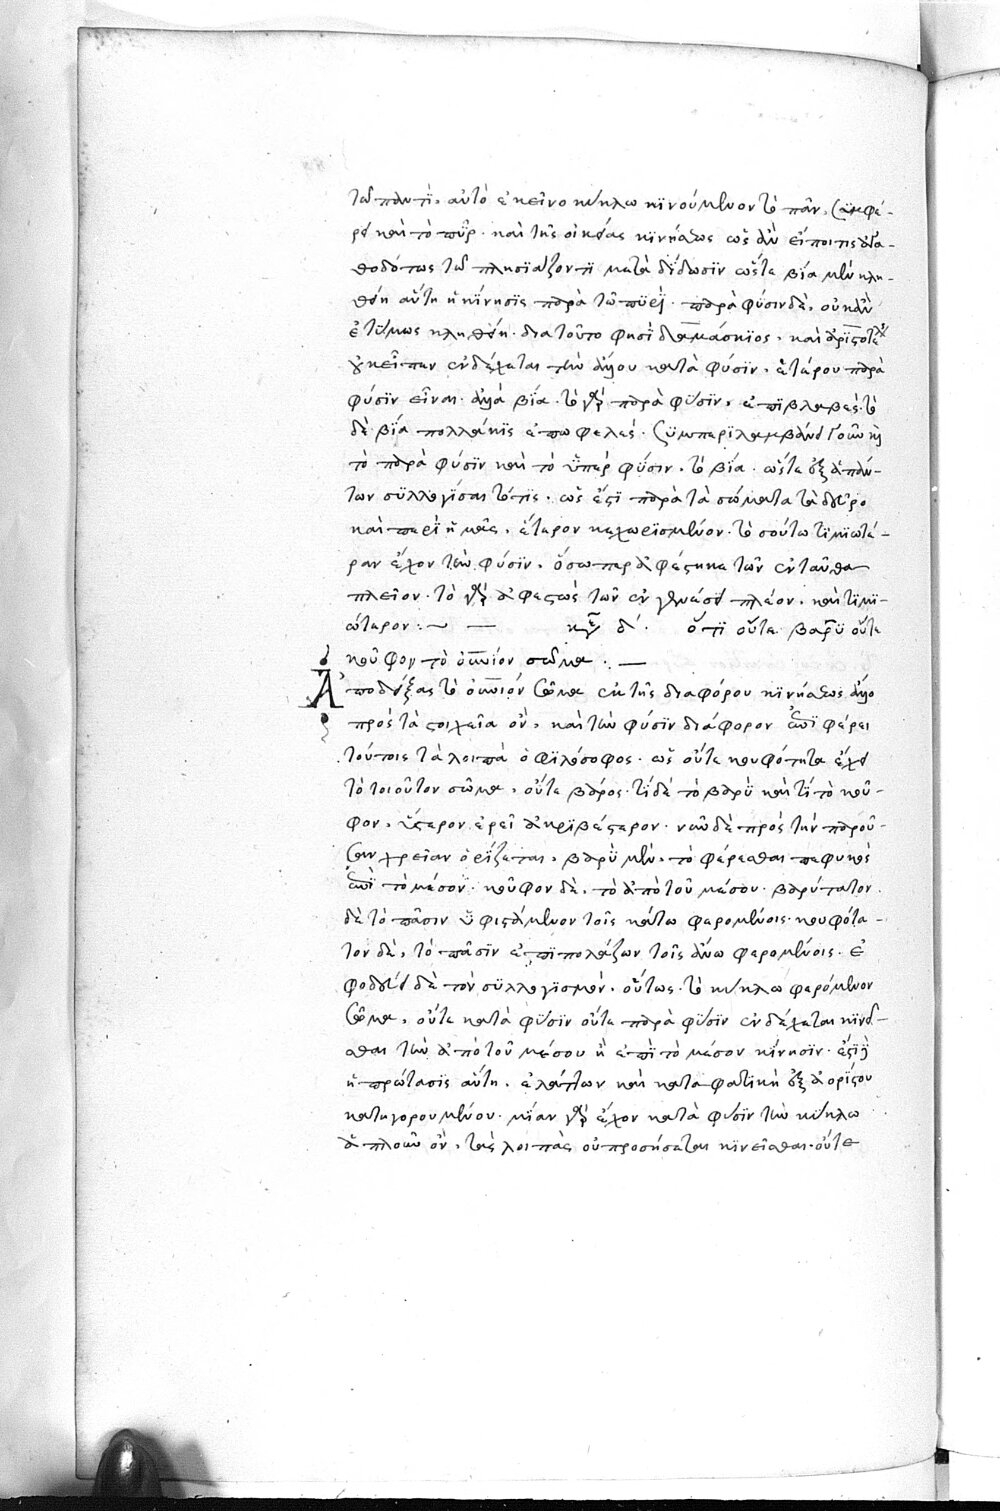 τῶ παντὶ, αὐτὸ ἐκεῖνο κύκλω κινούμενον τὸ πᾶν, συμφέ-
ρει καὶ τὸ πῦρ· καὶ τῆς οἰκείας κινήσεως ὡς ἂν εἴποι τις ἀγα-
θοδότως τῶ πλησιάζοντι μεταδίδωσιν ὥστε βία μὲν κλη-
θείη αὕτη ἡ κίνησις παρὰ τῶ πυρί· παρὰ φύσιν δὲ, οὐκ ἂν
ἑτοίμως κληθείη· διατοῦτο φησὶ δαμάσκιος, καὶ ἀριστοτέλης
οὐκ εἶπεν ἐνδέχεται τὴν ἄλλου κατὰ φύσιν, ἑτέρου παρὰ
φύσιν εἶναι· ἀλλὰ βία· τὸ γὰρ παρὰ φύσιν, ἐπιβλαβές· τὸ
δὲ βία πολλάκις ἐπωφελές· συμπεριλαμβάνει γοῦν καὶ
τὸ παρὰ φύσιν καὶ τὸ ὑπὲρ φύσιν, τὸ βία· ὥστε ἐξ ἁπάν-
των συλλογίσαιτό τις, ὡς ἔστι παρὰ τὰ σώματα τὰ δεῦρο
καὶ περὶ ἡμᾶς, ἕτερον κεχωρισμένον· τοσούτω τιμιωτέ-
ραν ἔχον τὴν φύσιν, ὅσω περ ἀφέστηκε τῶν ἐνταῦθα
πλεῖον· τὸ γὰρ ἀφεστὼς τῶν ἐν γενέσει πλέον, καὶ τιμι-
ώτερον:~ — κεφ δ΄· ὅτι οὔτε βαρὺ οὔτε
κοῦφον τὸ οὐνιον σῶμα·. —
Ἀποδείξας τὸ οὐνιον σῶμα ἐκ τῆς διαφόρου κινήσεως ἄλλο
πρὸς τὰ στοιχεῖα ὂν, καὶ τὴν φύσιν διάφορον ἐπιφέρει
τούτοις τὰ λοιπὰ ὁ φιλόσοφος· ὡς οὔτε κουφότητα ἔχει
τὸ τοιοῦτον σῶμα, οὔτε βάρος· τί δὲ τὸ βαρὺ καὶ τί τὸ κοῦ-
φον, ὕστερον ἐρεῖ ἀκριβέστερον· νῦν δὲ πρὸς τὴν παροῦ-
σαν χρείαν ὁρίζεται, βαρὺ μὲν, τὸ φέρεσθαι πεφυκὸς
ἐπὶ τὸ μέσον· κοῦφον δὲ, τὸ ἀπὸ τοῦ μέσου· βαρύτατον
δὲ τὸ πᾶσιν ὑφιστάμενον τοῖς κάτω φερομένοις· κουφότα-
τον δὲ, τὸ πᾶσιν ἐπιπολάζον τοῖς ἄνω φερομένοις· ἐ
φοδεύει δὲ τὸν συλλογισμὸν, οὕτως· τὸ κύκλω φερόμενον
σῶμα, οὔτε κατὰ φύσιν οὔτε παρὰ φύσιν ἐνδέχεται κινεῖ-
σθαι τὴν ἀπὸ τοῦ μέσου ἢ ἐπὶ τὸ μέσον κίνησιν· ἔστι δὲ
ἡ πρότασις αὕτη, ἐλάττων καὶ καταφατικὴ ἐξ ἀορίστου
κατηγορουμένου· μίαν γὰρ ἔχον κατὰ φύσιν τὴν κύκλω
ἁπλοῦν ὂν, τὰς λοιπὰς οὐ προσήσεται κινεῖσθαι· οὔτε